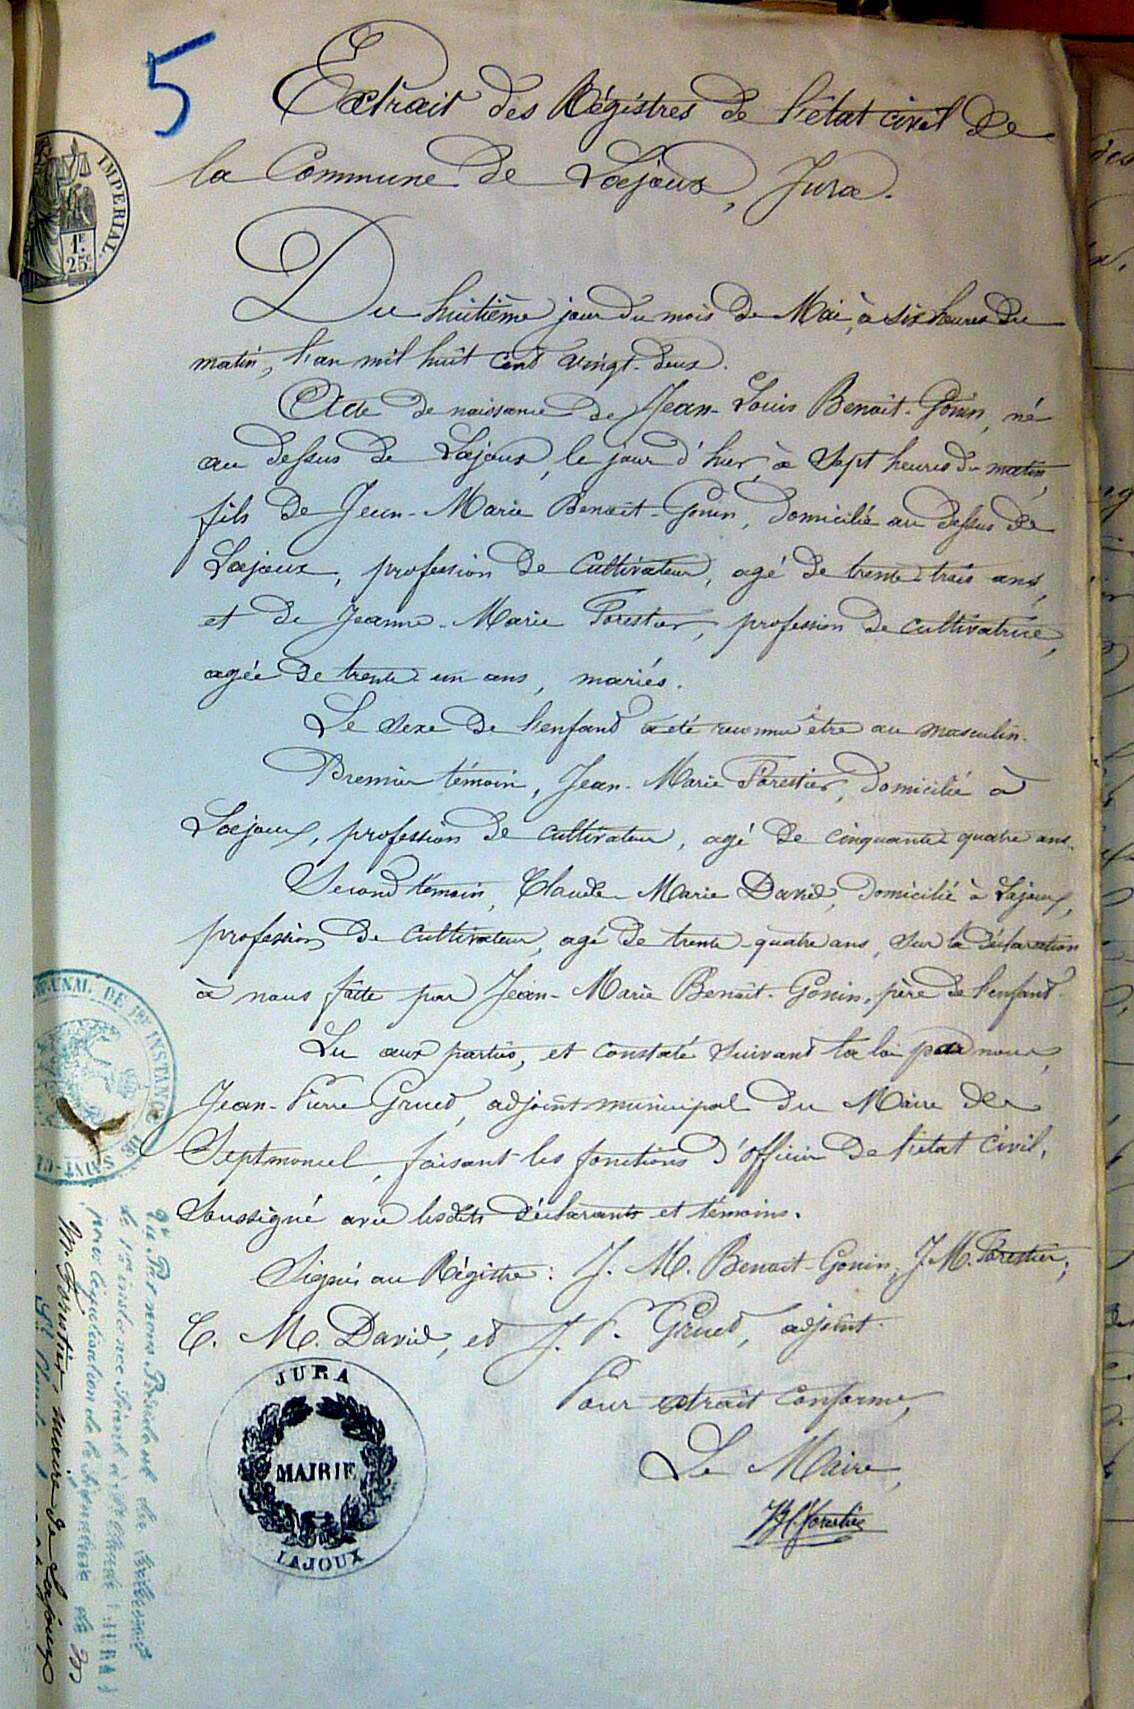 5
Extrait des Régistres de l'état civil de
la Commune de Lajoux, Jura.
IMPERIAL
1F.
25c
Du huitième jour du mois de Mai, à six heures du
matin, l'an mil huit cent vingt-deux.
Acte de naissance de Jean-Louis Benoit-Gonin, né
au dessus de Lajoux, le jour d'hier, à sept heures du matin,
fils de Jean-Marie Benoit-Gonin, domicilié au dessus de
Lajoux, profession de cultivateur, agé de trente-trois ans,
et de Jeanne-Marie Forestier, profession de cultivatrice,
agée de trente-un ans, mariés.
Le sexe de l'enfant a été reconnu être au masculin.
Premier témoin, Jean-Marie Forestier, domicilié à
Lajoux, profession de cultivateur, agé de cinquante-quatre ans.
Second témoin, Claude-Marie David, domicilié à Lajoux,
profession de cultivateur, agé de trente-quatre ans, sur la déclaration
à nous faite par Jean-Marie Benoit-Gonin, père de l'enfant.
Lu aux parties, et constaté suivant la loi par nous,
Jean-Pierre Gruet, adjoint municipal du Maire de
Septmoncel, faisant les fonctions d'officier de l'état civil,
Soussigné avec lesdits déclarants et témoins.
Signés au Régistre: J. M. Benoit-Gonin, J. M. Forestier,
C. M. David, et J. P. Gruet, adjoint.
Pour extrait conforme,
Le Maire,
JURA
MAIRIE
LAJOUX
TRIBUNAL DE 1RE INSTANCE DE SAINT-CL
Vu Par nous Président du tribunal
de 1ère instance séant à St Claude (JURA)
pour légalisation de la Signature de M
M. Forestier, maire de Lajoux